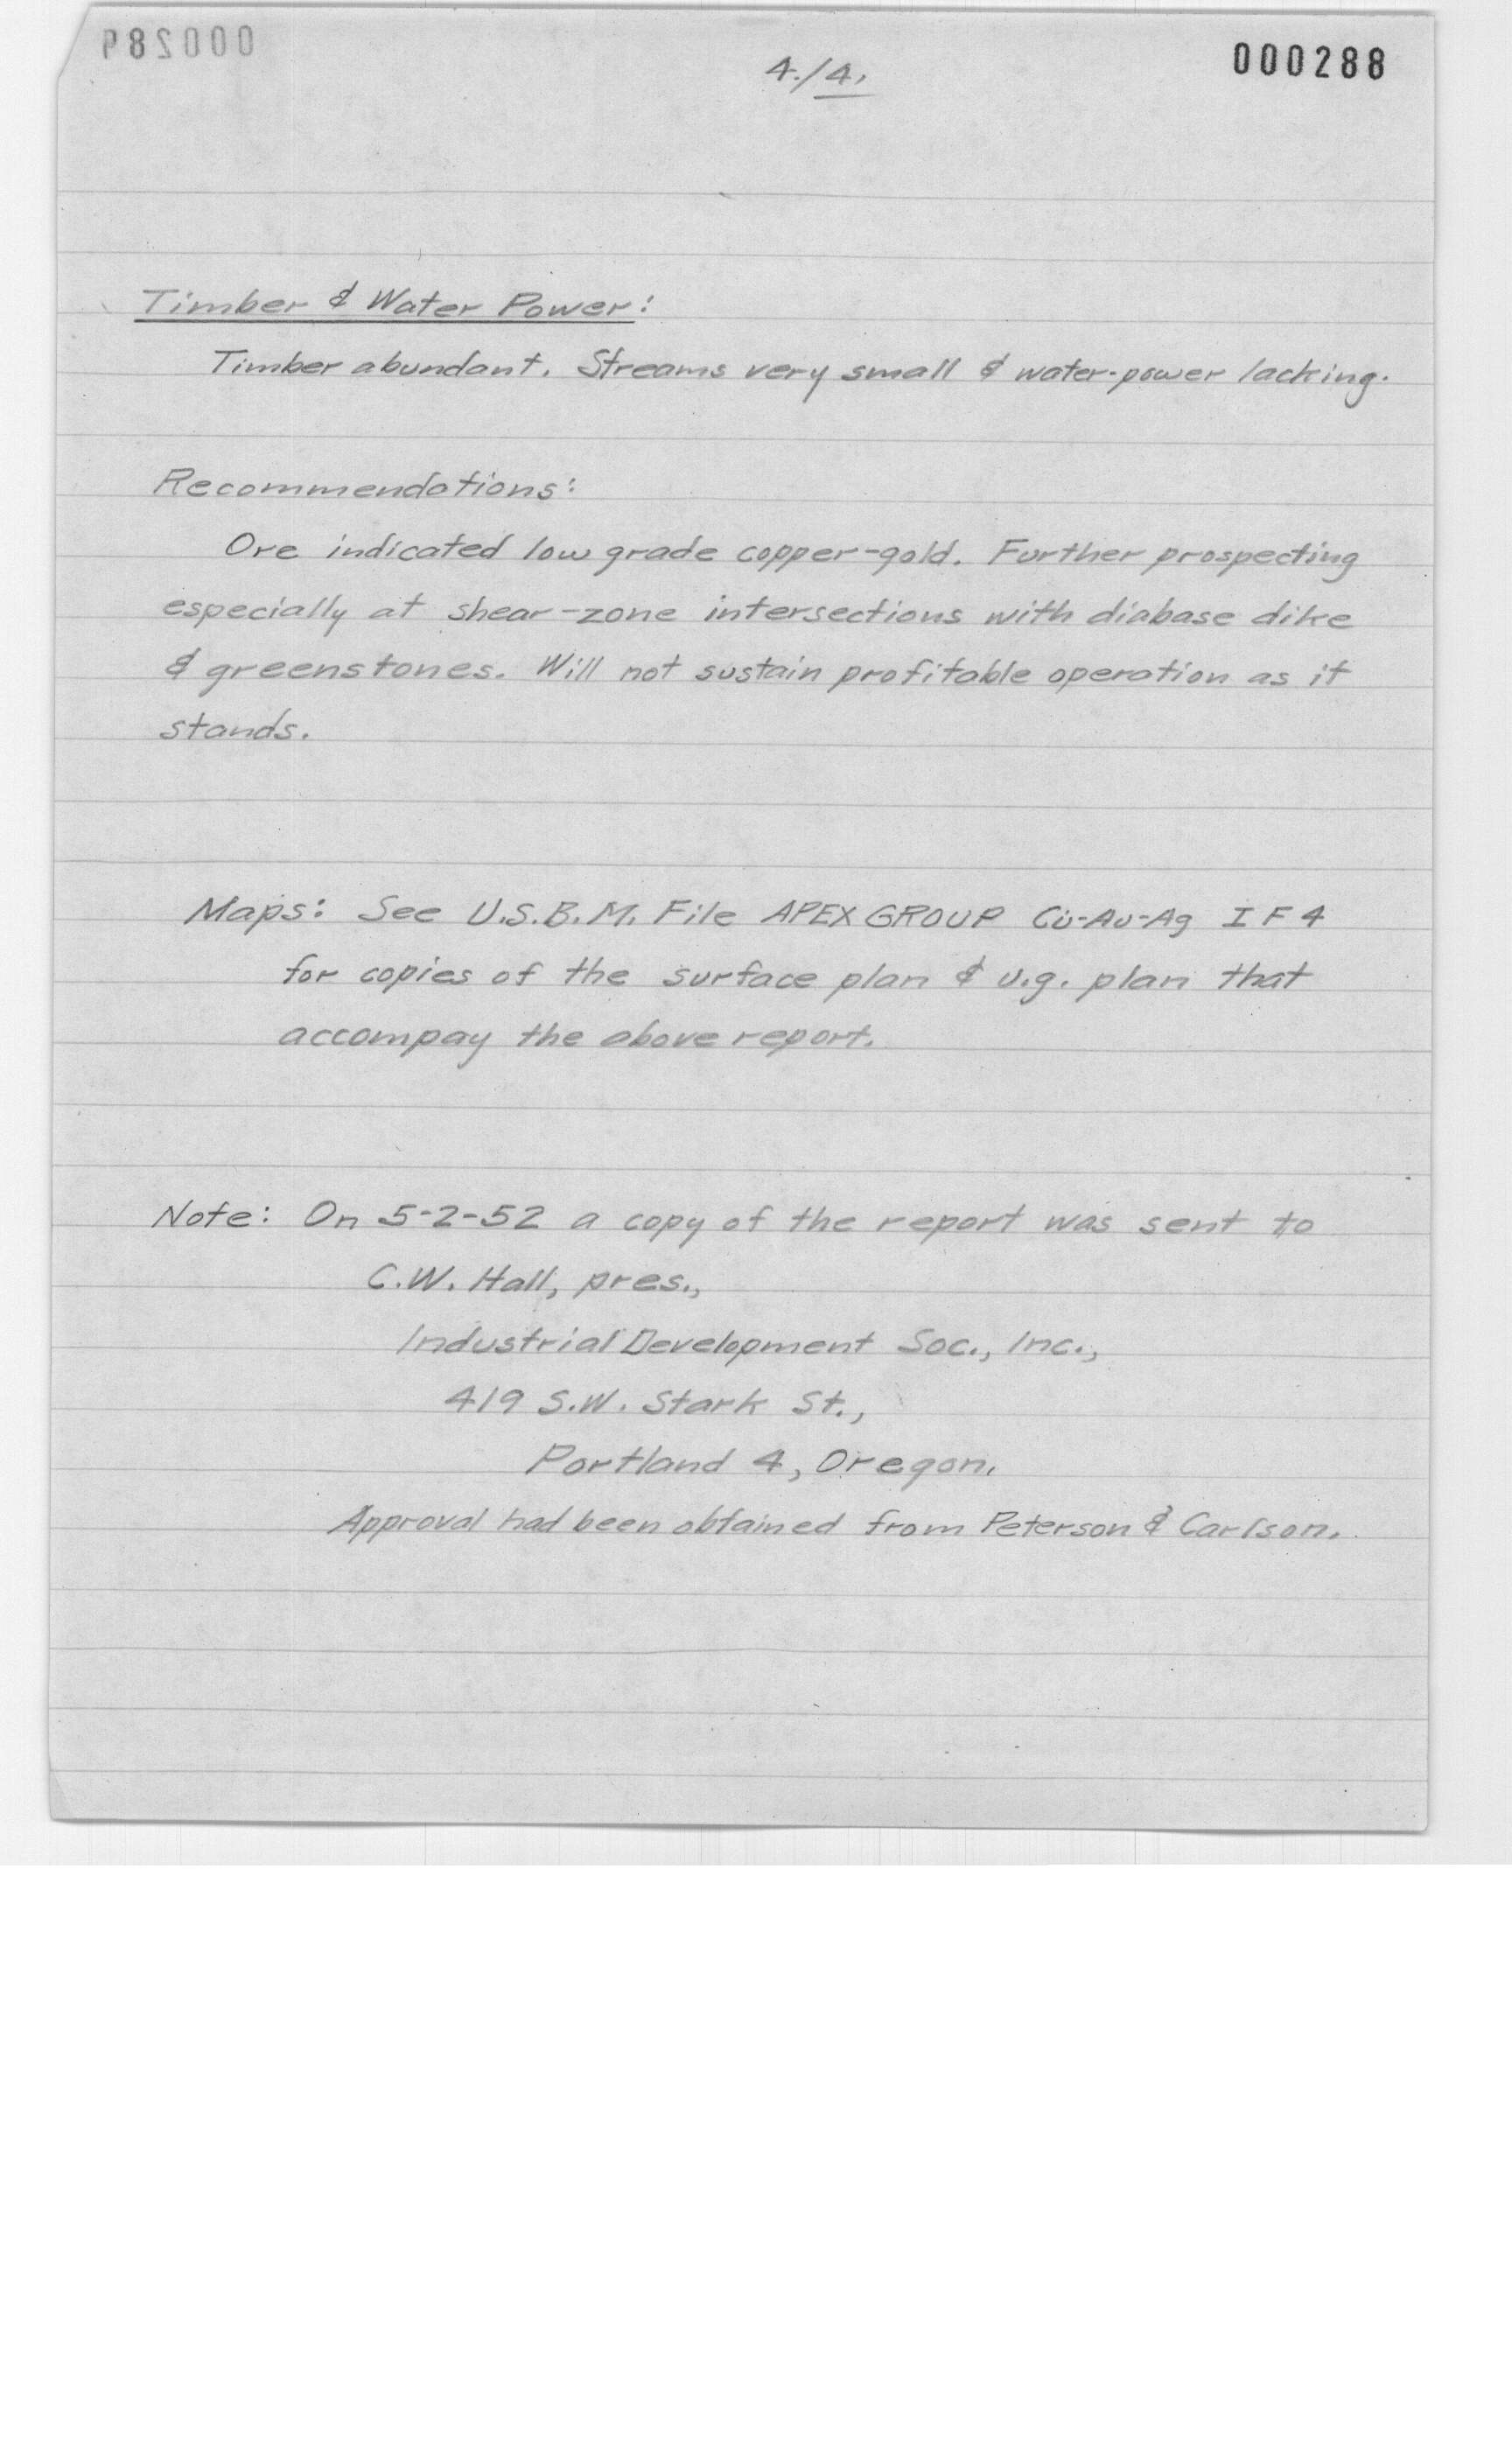 000289
4./4.
000288
Timber & Water Power:
Timber abundant. Streams very small & water-power lacking.
Recommendations:
Ore indicated low grade copper-gold. Further prospecting
especially at shear-zone intersections with diabase dike
& greenstones. Will not sustain profitable operation as it
stands.
Maps: See U.S.B.M. File APEX GROUP Cu-Au-Ag I F 4
for copies of the surface plan & u.g. plan that
accompay the above report.
Note: On 5-2-52 a copy of the report was sent to
C.W. Hall, pres.,
Industrial Development Soc., Inc.,
419 S.W. Stark St.,
Portland 4, Oregon.
Approval had been obtained from Peterson & Carlson.